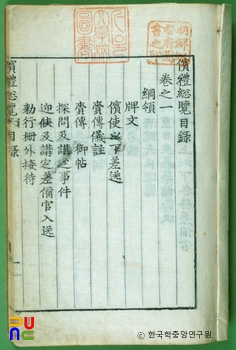 儐禮総覽目錄
卷之一
綱領
牌文
儐使以下差送
賫傳儀註
賫傳 御帖
探問及講定事件
迎候及講定差備官入送
勅行柵外接待
儐禮総覽 目錄
ⓒ한국학중앙연구원